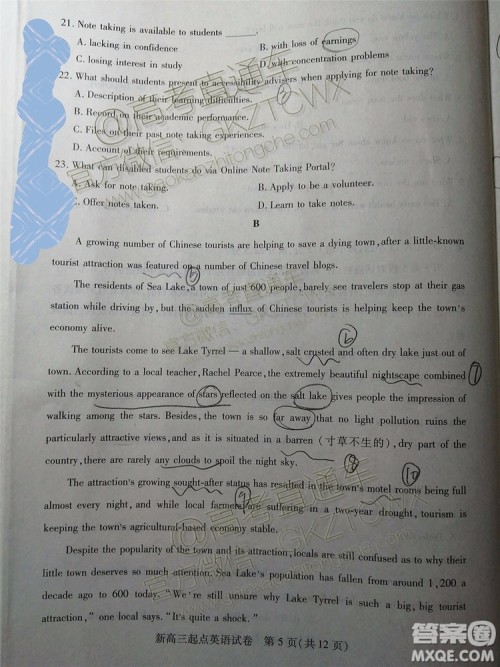 21. Note taking is available to students ______.
A. lacking in confidence B. with loss of earnings
C. losing interest in study D. with concentration problems
22. What should students present to accessibility advisers when applying for note taking?
A. Description of their learning difficulties.
B. Record on their academic performance.
C. Files on their past note taking experiences.
D. Account of their requirements.
23. What can disabled students do via Online Note Taking Portal?
A. Ask for note taking. B. Apply to be a volunteer.
C. Offer notes taken. D. Learn to take notes.
B
A growing number of Chinese tourists are helping to save a dying town, after a little-known
tourist attraction was featured on a number of Chinese travel blogs.
The residents of Sea Lake, a town of just 600 people, barely see travelers stop at their gas
station while driving by, but the sudden influx of Chinese tourists is helping keep the town's
economy alive.
The tourists come to see Lake Tyrrel — a shallow, salt crusted and often dry lake just out of
town. According to a local teacher, Rachel Pearce, the extremely beautiful nightscape combined
with the mysterious appearance of stars reflected on the salt lake gives people the impression of
walking among the stars. Besides, the town is so far away that no light pollution ruins the
particularly attractive views, and as it is situated in a barren (寸草不生的), dry part of
the country, there are rarely any clouds to spoil the night sky.
The attraction's growing sought-after status has resulted in the town's motel rooms being full
almost every night, and while local farmers are suffering in a two-year drought, tourism is
keeping the town's agricultural-based economy stable.
Despite the popularity of the town and its attraction, locals are still confused as to why their
little town deserves so much attention. Sea Lake's population has fallen from around 1,200 a
decade ago to 600 today. "We're still unsure why Lake Tyrrel is such a big, big tourist
attraction," one local says. "It's quite a shock."
新高三起点英语试卷 第 5 页(共 12 页)
@高考直通车
官方微信:GKZTCWX
gaokaozhitongche.com
答案圈
MXQE.COM